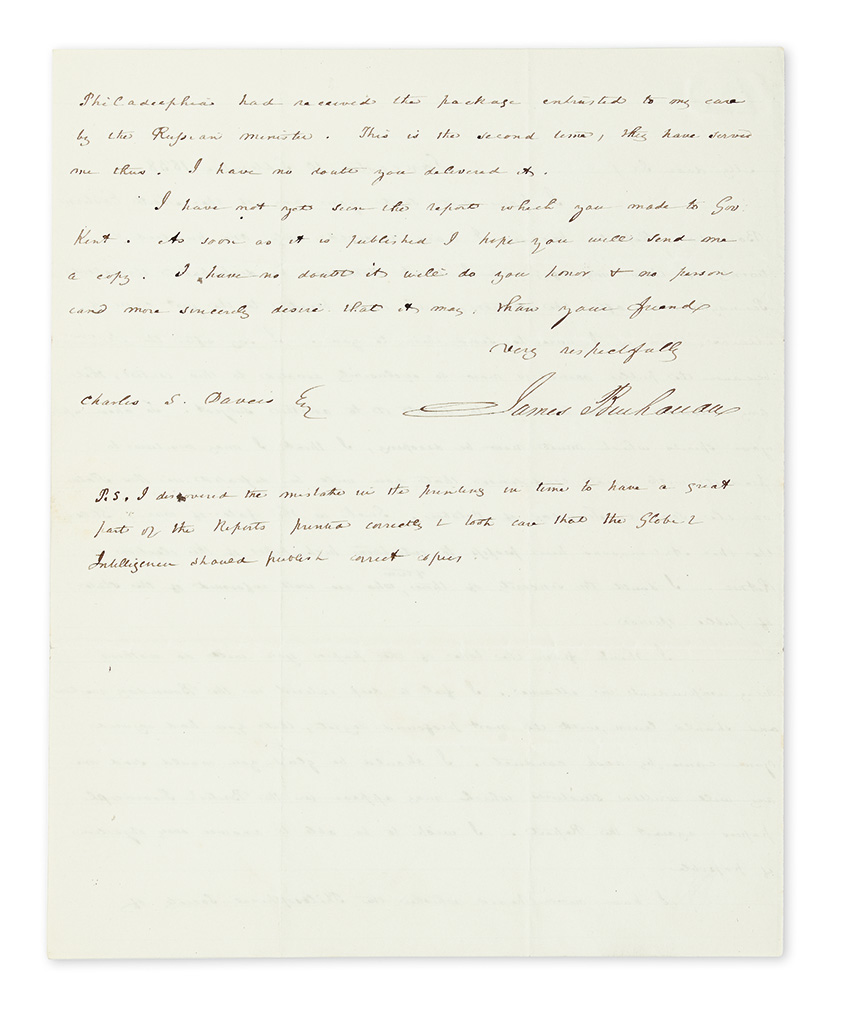 Philadelphia had received the package entrusted to my care
by the Russian minister. This is the second time, they have served
me thus. I have no doubt you delivered it.
I have not yet seen the report which you made to Gov.
Kent. As soon as it is published I hope you will send me
a copy. I have no doubt it will do you honor & no person
can more sincerely desire that it may, than your friend
very respectfully
James Buchanan
Charles S. Daveis Esq
P.S. I discovered the mistake in the printing in time to have a great
part of the Reports printed correctly & took care that the Globe &
Intelligencer should publish correct copies.